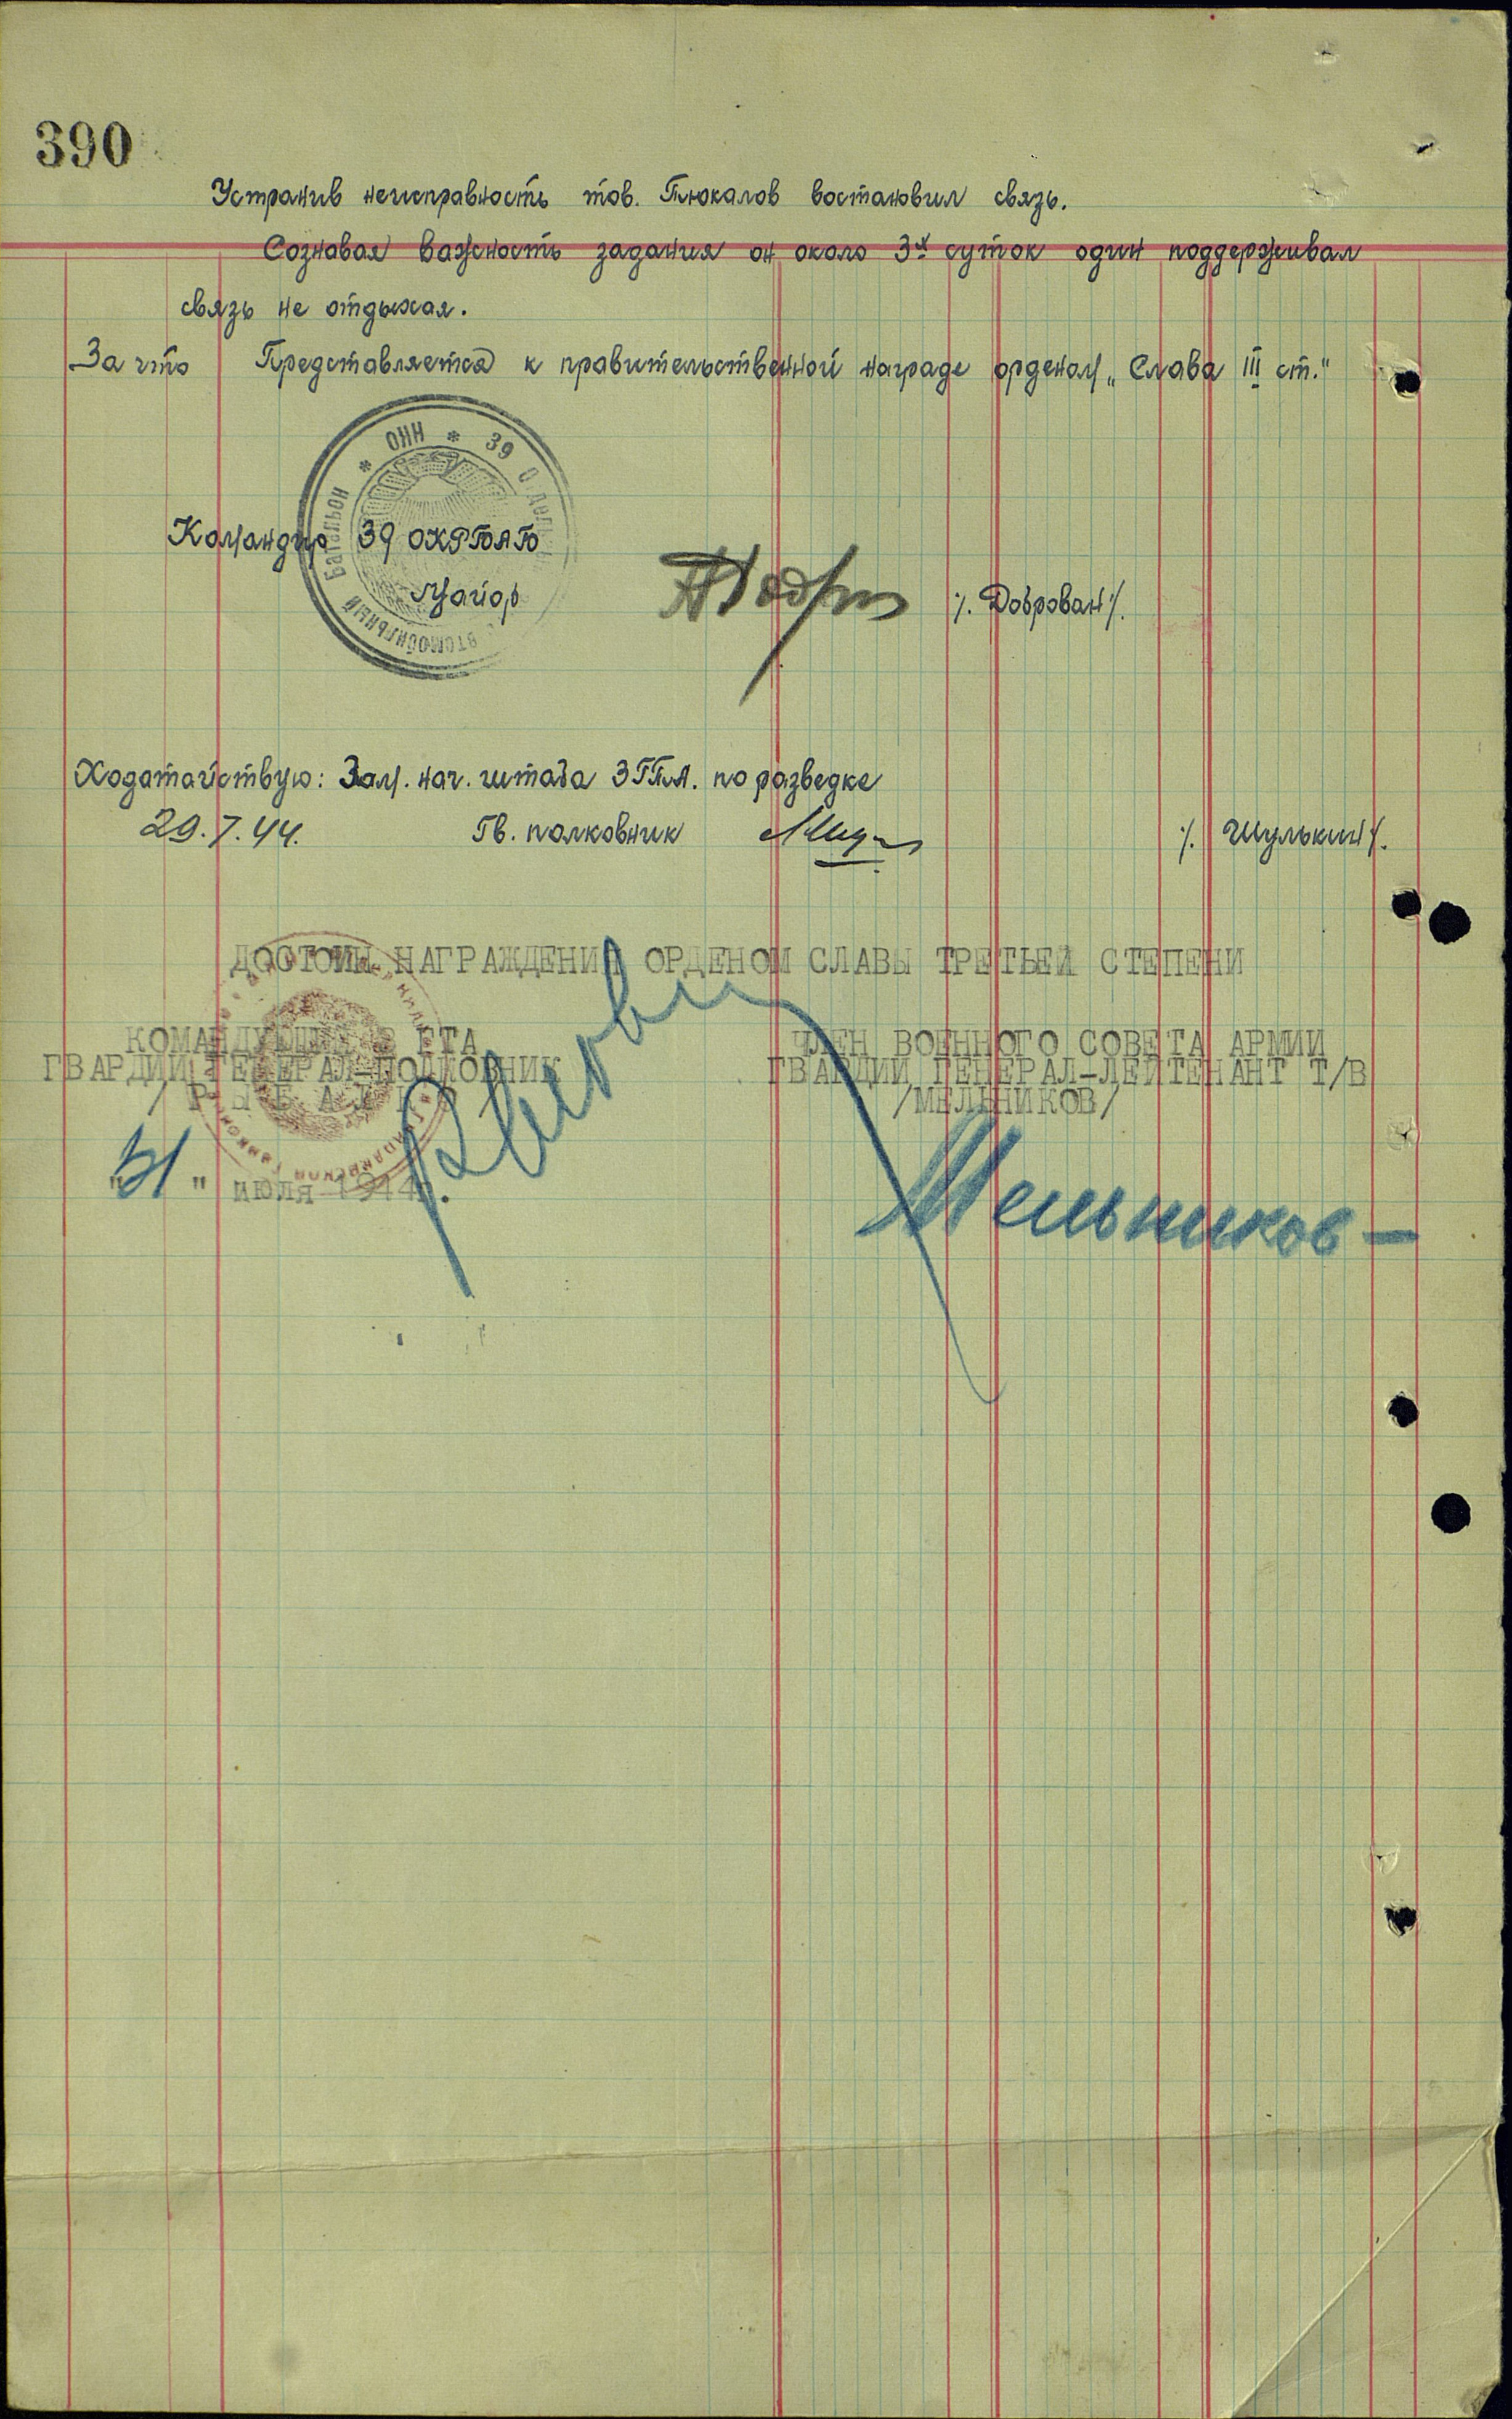 390
Устранив неисправность тов. Тюкалов востановил связь.
Сознавая важность задания он около 3х суток один поддерживал
связь не отдыхая.
За что Представляется к правительственной награде орденом „Слава III ст."
* НКО * 39 Батальон
Командир 39
Майор /. Доброван /.
Ходатайствую: Зам. нач. штаба 3ГТА. по разведке
29.7.44. Гв. полковник /. Шулькин /.
ДОСТОИН НАГРАЖДЕНИЯ ОРДЕНОМ СЛАВЫ ТРЕТЬЕЙ СТЕПЕНИ
КОМАНДУЮЩИЙ 3 ГТА ЧЛЕН ВОЕННОГО СОВЕТА АРМИИ
ГВАРДИИ ГЕНЕРАЛ-ПОЛКОВНИК ГВАРДИИ ГЕНЕРАЛ-ЛЕЙТЕНАНТ Т/В
/ Р Ы Б А Л К О / /МЕЛЬНИКОВ/
"31" июля 1944г. Мельников